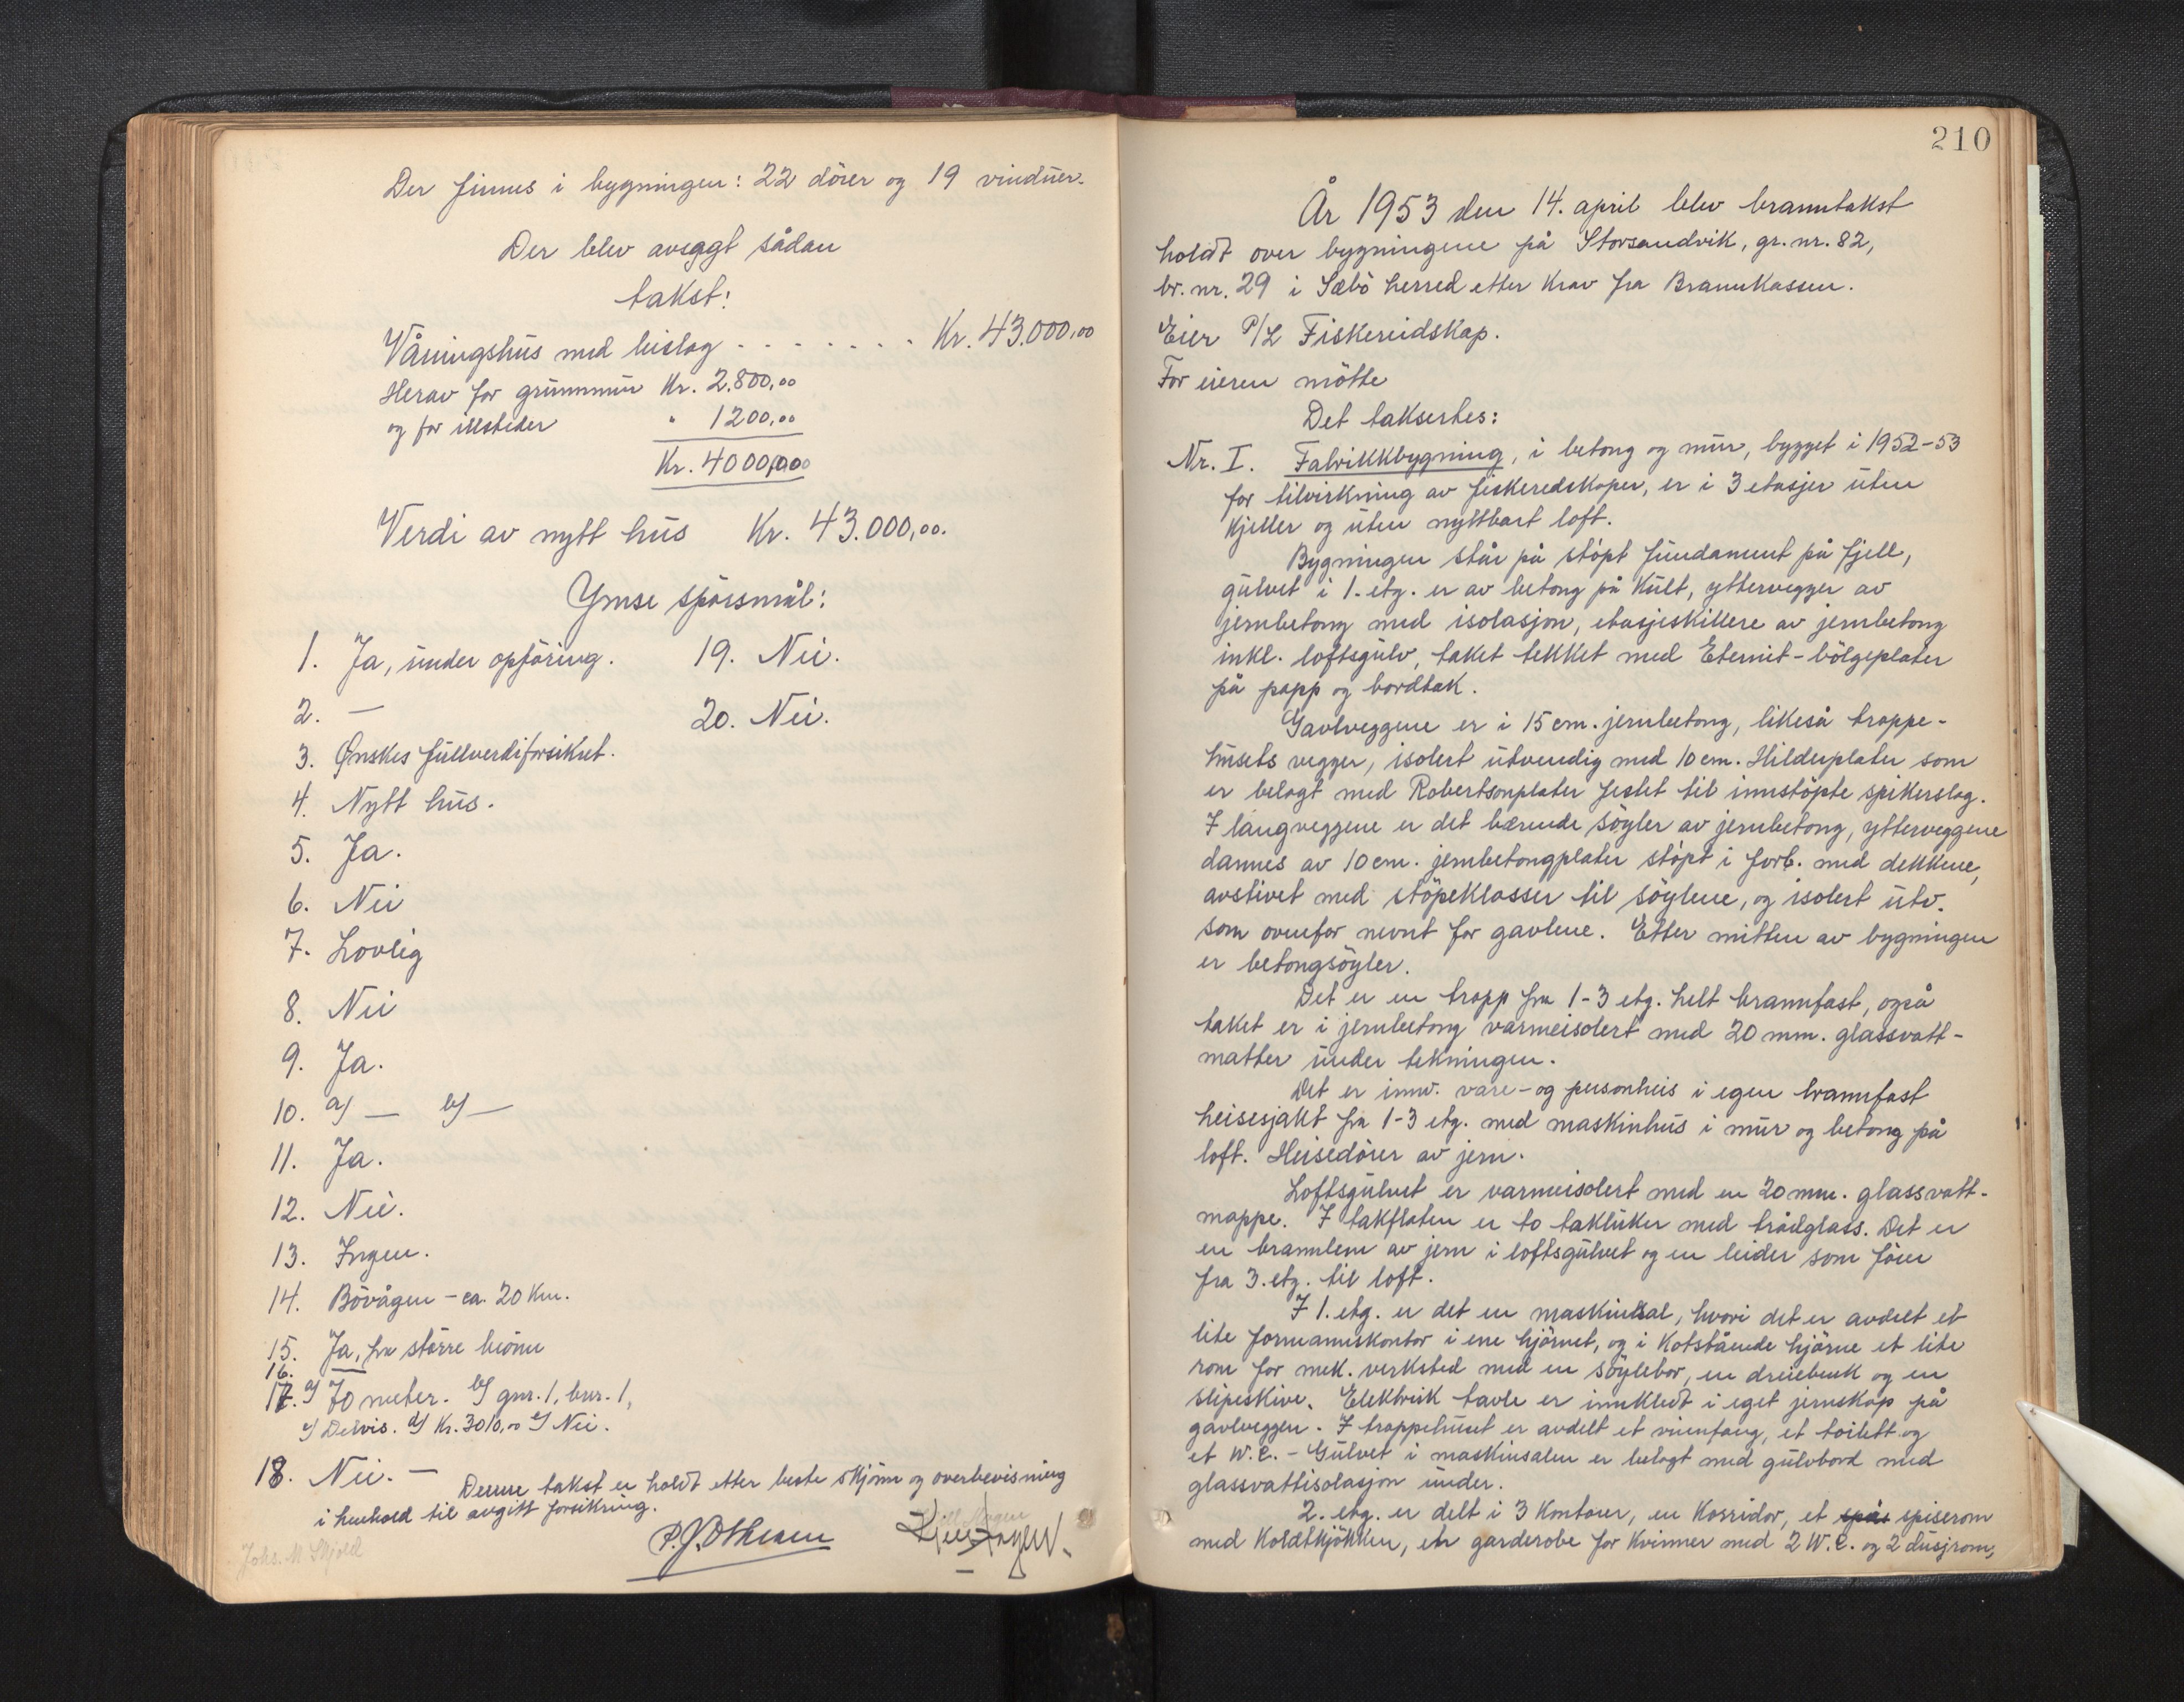 Der finnes i bygningen: 22 dörer og 19 vinduer.
Der blev avsagt sådan
takst:
Våningshus med bislag . . . . . . . Kr. 43.000,00
Herav for grunnmur Kr. 2.800,00
og for illsteder " 1200,00
Kr. 4000,00
Verdi av nytt hus Kr. 43.000,00.
Ymse spörsmål:
1. Ja, under opföring.
2. —
3. Ønskes fullverdiforsikret.
4. Nytt hus.
5. Ja.
6. Nei
7. Lovlig
8. Nei
9. Ja.
10. a) — b) —
11. Ja.
12. Nei.
13. Ingen.
14. Bövågen - ca. 20 Km.
15. Ja, fra större brönn
16.
17. a) 70 meter. b) gnr. 1, bnr. 1,
c) Delvis. d) Kr. 3010,00 e) Nei.
18. Nei. —
19. Nei.
20. Nei.
Denne takst er holdt etter beste skjönn og overbevisning
i henhold til avgitt forsikring.
Johs. M Skjold
210
År 1953 den 14. april blev branntakst
holdt over bygningene på Storsandvik, gr. nr. 82,
br. nr. 29 i Sæbö herred etter krav fra Brannkassen.
Eier P/L Fiskereidskap.
For eieren mötte
Det taksertes:
Nr. I. Fabrikkbygning, i betong og mur, bygget i 1952-53
for tilvirkning av fiskeredskaper, er i 3 etasjer uten
kjeller og uten nyttbart loft.
Bygningen står på stöpt fundament på fjell,
gulvet i 1. etg. er av betong på kult, yttervegger av
jernbetong med isolasjon, etasjeskillere av jernbetong
inkl. loftsgulv, taket tekket med Eternit-bölgeplater
på papp og bordtak.
Gavlveggene er i 15 cm. jernbetong, likeså trappe-
husets vegger, isolert utvendig med 10 cm. Hilderplater som
er belagt med Robertsonplater festet til innstöpte spikerslag.
I langveggene er det bærende söyler av jernbetong, ytterveggene
dannes av 10 cm. jernbetongplater stöpt i forb. med dekkene,
avstivet med stöpeklasser til söylene, og isolert utv.
som ovenfor nevnt for gavlene. Etter mitten av bygningen
er betongsöyler.
Det er en trapp fra 1-3 etg. helt brannfast, også
taket er i jernbetong varmeisolert med 20 mm. glassvatt-
matter under tekningen.
Det er innv. vare- og personheis i egen brannfast
heisesjakt fra 1-3 etg. med maskinhus i mur og betong på
loft. Heisedörer av jern.
Loftsgulvet er varmeisolert med en 20 mm. glassvatt-
mappe. I takflaten er to takluker med trådglass. Det er
en brannlem av jern i loftsgulvet og en leider som förer
fra 3. etg. til loft.
I 1. etg. er det en maskinsal, hvori det er avdelt et
lite formannskontor i ene hjörnet, og i kotstående hjörne et lite
rom for mek. verksted med en söylebor, en dreiebenk og en
slipeskive. Elektrisk tavle er innkledt i eget jernskap på
gavlveggen. I trappehuset er avdelt et vinnfang, et toilett og
et W.C. - Gulvet i maskinsalen er belagt med gulvbord med
glassvattisolasjon under.
2. etg. er delt i 3 kontorer, en korridor, et spis spiserom
med koldtkjökken, en garderobe for kvinner med 2 W.C. og 2 dusjrom,